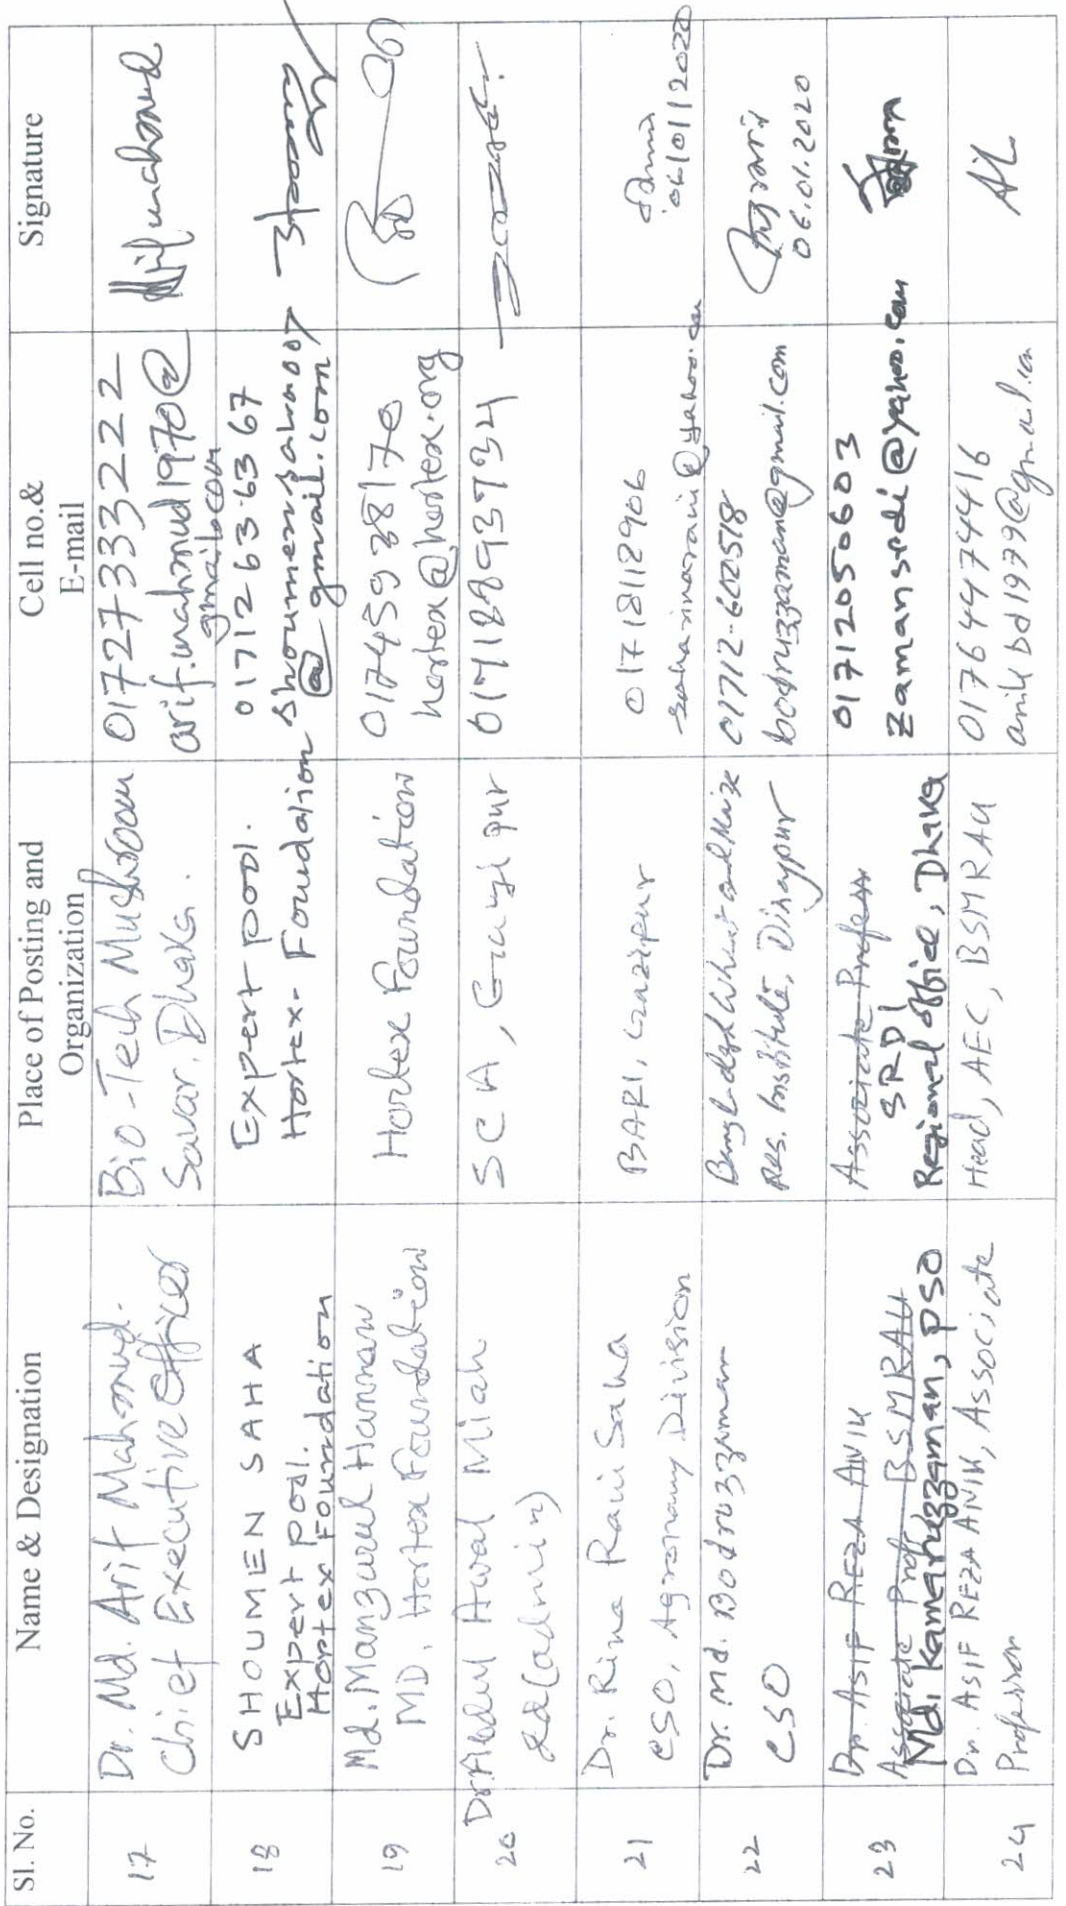 Sl. No.
Name & Designation
Place of Posting and
Organization
Cell no.&
E-mail
Signature
17
Dr. Md. Arif Mahmud.
Chief Executive Officer
Bio-Tech Mushroom
Savar, Dhaka.
01727333222
arif.mahmud1970@
gmail.com
18
SHOUMEN SAHA
Expert pool.
Hortex Foundation
Expert pool.
Hortex- Foundation
01712 63 63 67
shoumensaha007
@gmail.com
19
Md. Manzurul Hannan
MD. Hortex Foundation
Hortex Foundation
hortex@hortex.org
20
Dr. Abdul Awal Miah
(admin)
SCA, Gazipur
21
Dr. Rina Rani Saha
CSO, Agronomy Division
BARI, Gazipur
01718112906
saharinarani@yahoo.com
06/01/2020
22
Dr. Md. Bodruzzaman
CSO
Bangladesh Wheat and Maize
Res. Institute, Dinajpur
01712-602518
bodruzzaman@gmail.com
06.01.2020
23
Dr. ASIF REZA ANIK
Associate Prof. BSMRAU
Md. Kamaruzzaman, PSO
Associate Profess
SRDI
Regional office, Dhaka
01712050603
zamansrdi@yahoo.com
24
Dr. ASIF REZA ANIK, Associate
Professor
Head, AEC, BSMRAU
01764474416
anikbd1979@gmail.com